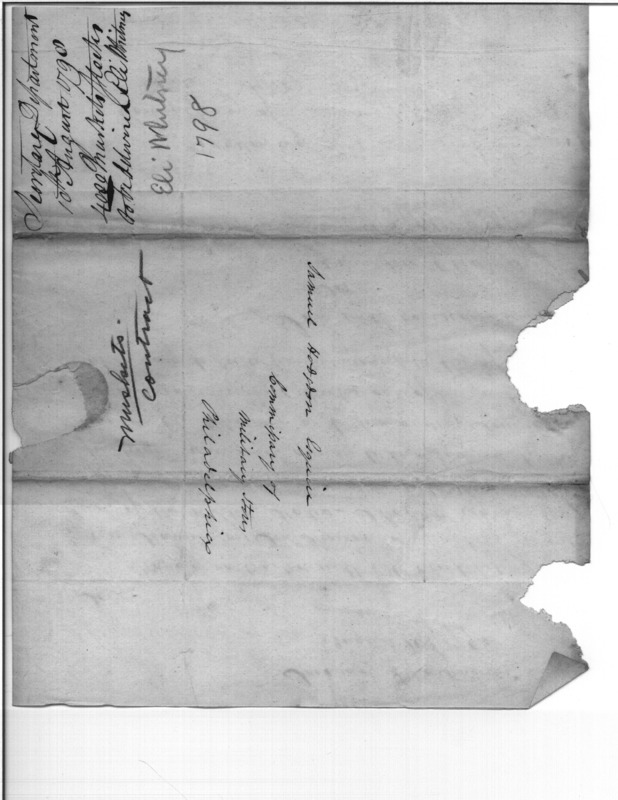 Department
10th August 1798
4000 Muskets
Eli Whitney
Eli Whitney
1798
Muskets.
contract
Samuel Hodgdon Esquire
Commissary of
Military Stores
Philadelphia